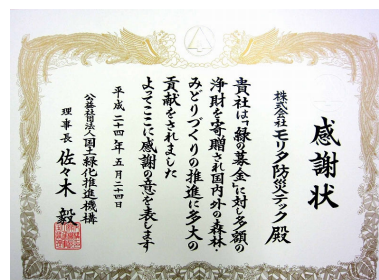 感謝状
株式会社モリタ防災テック 殿
貴社は「緑の募金」に対し多額の
浄財を寄贈され国内外の森林・
みどりづくりの推進に多大の
貢献をされました
よってここに感謝の意を表します
平成二十四年五月二十四日
公益社団法人国土緑化推進機構
理事長 佐々木 毅